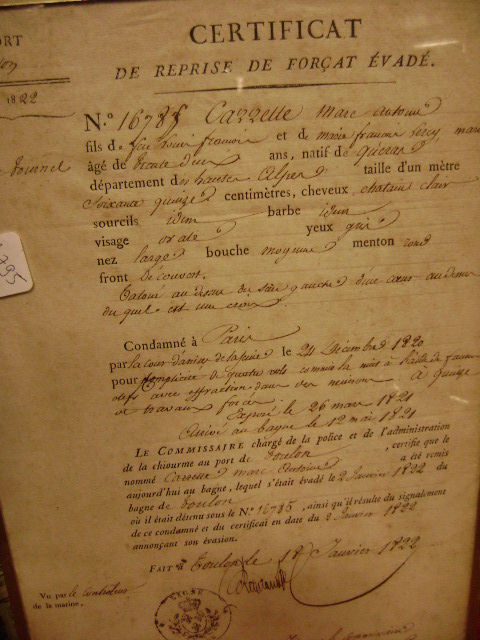 ORT
CERTIFICAT
DE REPRISE DE FORÇAT ÉVADÉ.
1822
N.º 16785 Cazzette Marc Antoine
fils de feu Louis François et de Marie
âgé de trente deux ans, natif de
département des hautes Alpes taille d'un mètre
soixante quinze centimètres, cheveux chatain clair
sourcils idem barbe idem
visage ovale yeux gris
nez large bouche moyenne menton rond
front découvert.
Tatoué au dessus du sein gauche d'un cœur au dessus
duquel est une croix.
1795
Condamné à Paris
par la cour d'assises de la Seine le 24 Décembre 1820
pour complicité de quatre vols commis la nuit à l'aide de fausses
clefs avec effraction dans des maisons à quinze
ans travaux forcés.
Exposé le 26 mars 1821
Arrivé au bagne le 12 mai 1821
LE COMMISSAIRE chargé de la police et de l'administration
de la chiourme au port de Toulon, certifie que le
nommé Cazzette Marc Antoine a été remis
aujourd'hui au bagne, lequel s'était évadé le 2 Janvier 1822 du
bagne de Toulon
où il était détenu sous le N.º 16785, ainsi qu'il résulte du signalement
de ce condamné et du certificat en date du 2 Janvier 1822
annonçant son évasion.
FAIT à Toulon le 18 Janvier 1822
Vu par le contrôleur
de la marine,